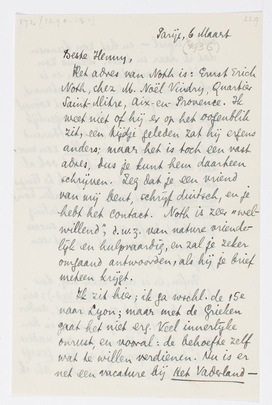 Parijs, 6 Maart
(1936)
Beste Henny,
Het adres van Noth is: Ernst Erich
Noth, chez M. Noël Vindry, Quartier
Saint-Mitre, Aix-en-Provence. Ik
weet niet of hij er op het oogenblik
zit, een tijdje geleden zat hij ergens
anders; maar het is toch een vast
adres, dus je kunt hem daarheen
schrijven. Zeg dat je een vriend
van mij bent, schrijf duitsch, en je
hebt het contact. Noth is zeer "wel-
willend", d.w.z. van nature vriende-
lijk en hulpvaardig, en zal je zeker
omgaand antwoorden, als hij je brief
meteen krijgt.
Ik zit hier; ik ga wschl. de 15e
naar Lyon; maar met de Grieken
gaat het niet erg. Veel innerlijke
onrust, en vooral: de behoefte zelf
wat te willen verdienen. Nu is er
net een vacature bij Het Vaderland —